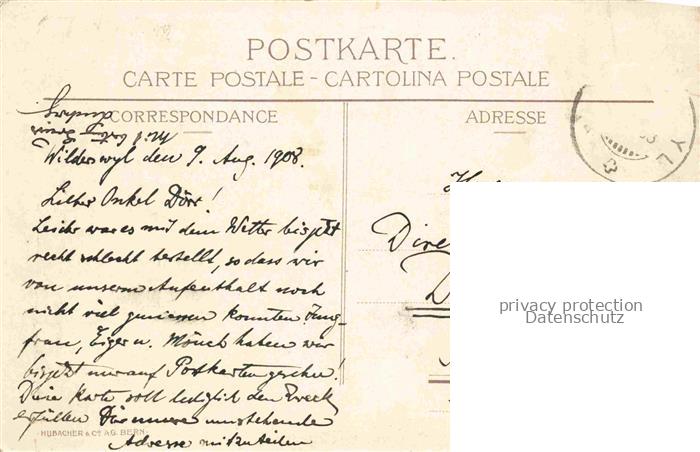 POSTKARTE.
CARTE POSTALE - CARTOLINA POSTALE
CORRESPONDANCE
ADRESSE
Wilderswyl den 9. Aug. 1908.
Lieber Onkel Dörr!
Leider war es mit dem Wetter bisjetzt
recht schlecht bestellt, so dass wir
von unserm Aufenthalt noch
nicht viel geniessen konnten. Jung-
frau, Eiger u. Mönch haben wir
bisjetzt nur auf Postkarten gesehen!
Diese Karte soll lediglich den Zweck
erfüllen Dir unsere umstehende
Adresse mitzuteilen
HUBACHER & Cº A.G. BERN.
Dire
privacy protection
Datenschutz